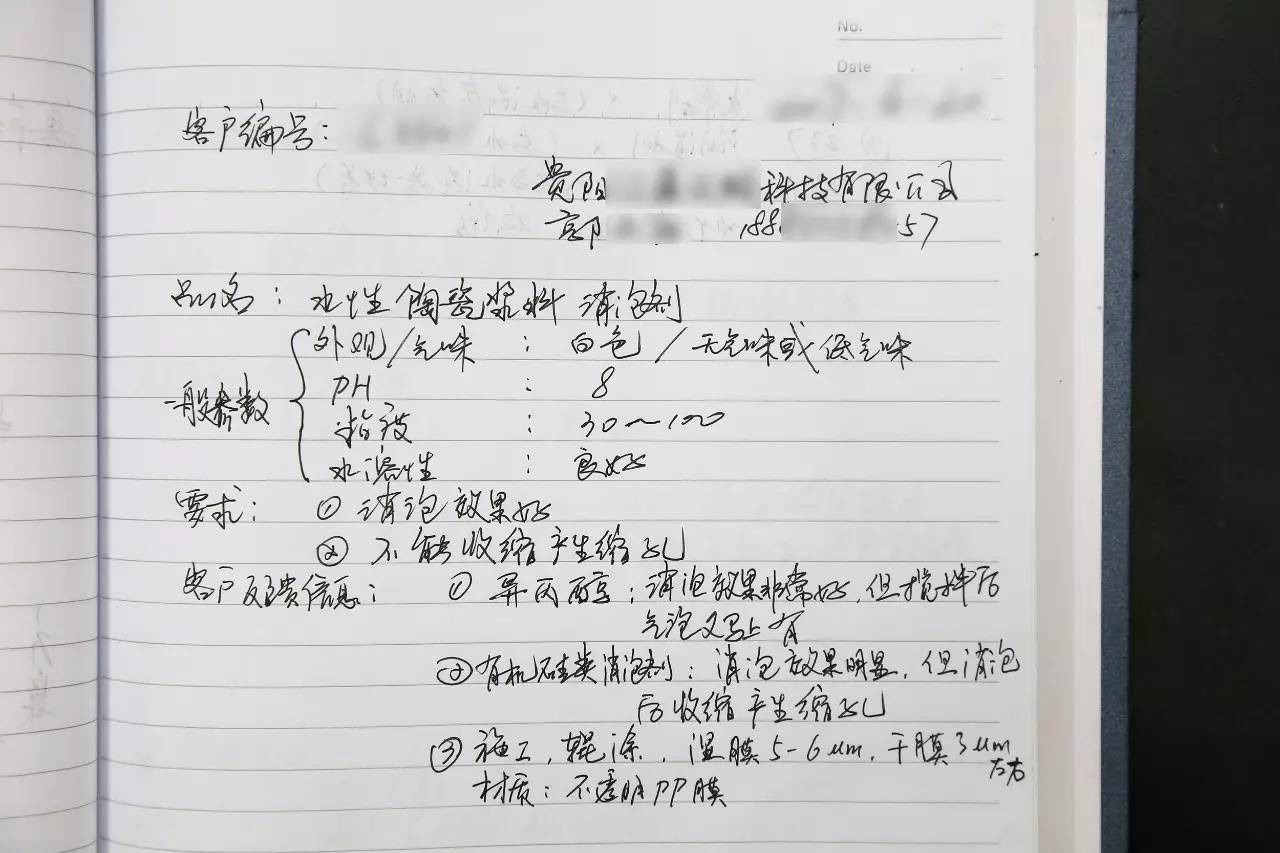 No.
Date
客户编号:
贵阳 科技有限公司
郭 188 57
品名: 水性陶瓷浆料 消泡剂
一般参数
外观/气味 : 白色/无气味或低气味
PH : 8
粘度 : 30~100
水溶性 : 良好
要求: ① 消泡效果好
② 不能收缩产生缩孔
客户反馈信息: ① 异丙醇: 消泡效果非常好,但搅拌后
气泡又马上有
② 有机硅类消泡剂: 消泡效果明显,但消泡
后收缩产生缩孔
③ 施工,辊涂,湿膜5-6um,干膜3um
左右
材质: 不透明PP膜